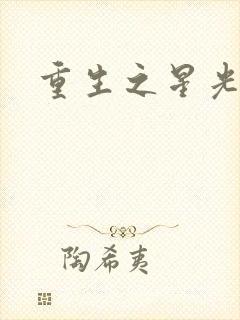 重生之星光
陶希夷